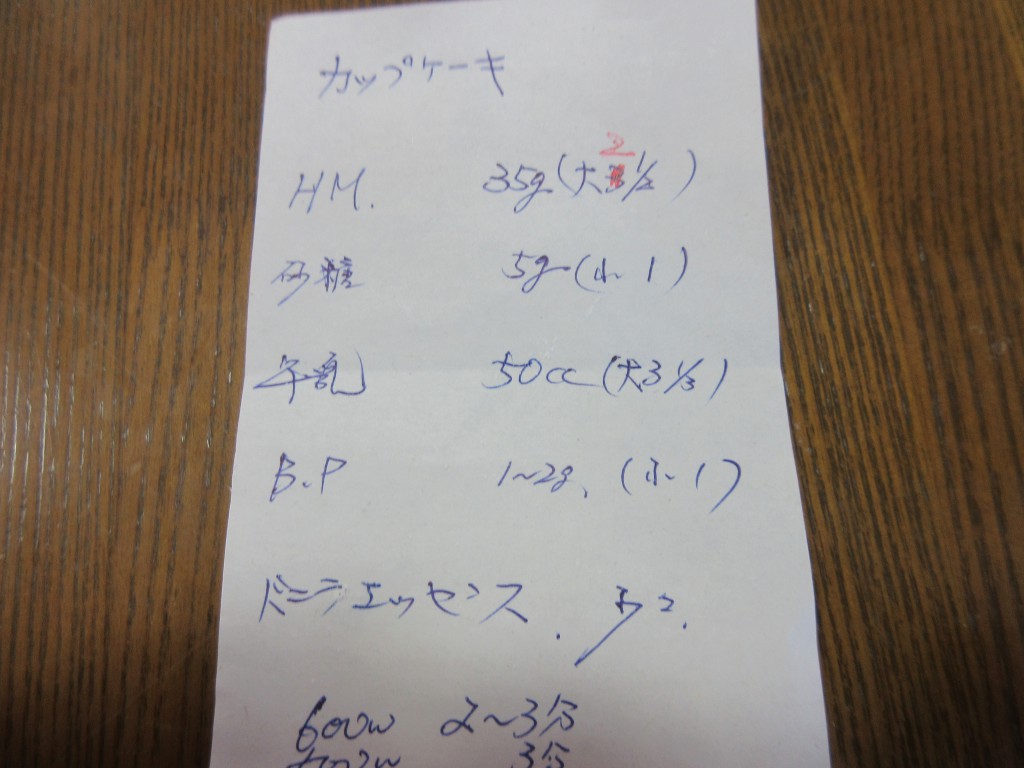 カップケーキ
2
HM. 35g(大3 1/2)
砂糖 5g(小 1)
牛乳 50cc(大3 1/3)
B.P 1~2g、(小 1)
バニラエッセンス. 少々.
600w 2~3分
3分